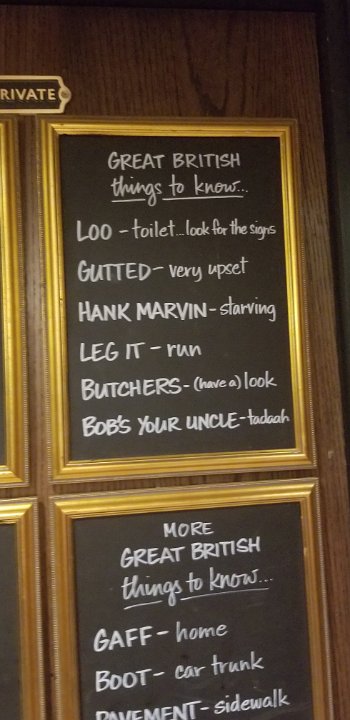 PRIVATE
GREAT BRITISH
things to know...
LOO - toilet...look for the signs
GUTTED - very upset
HANK MARVIN - starving
LEG IT - run
BUTCHERS - (have a) look
BOB'S YOUR UNCLE - tadaah
MORE
GREAT BRITISH
things to know...
GAFF - home
BOOT - car trunk
PAVEMENT - sidewalk